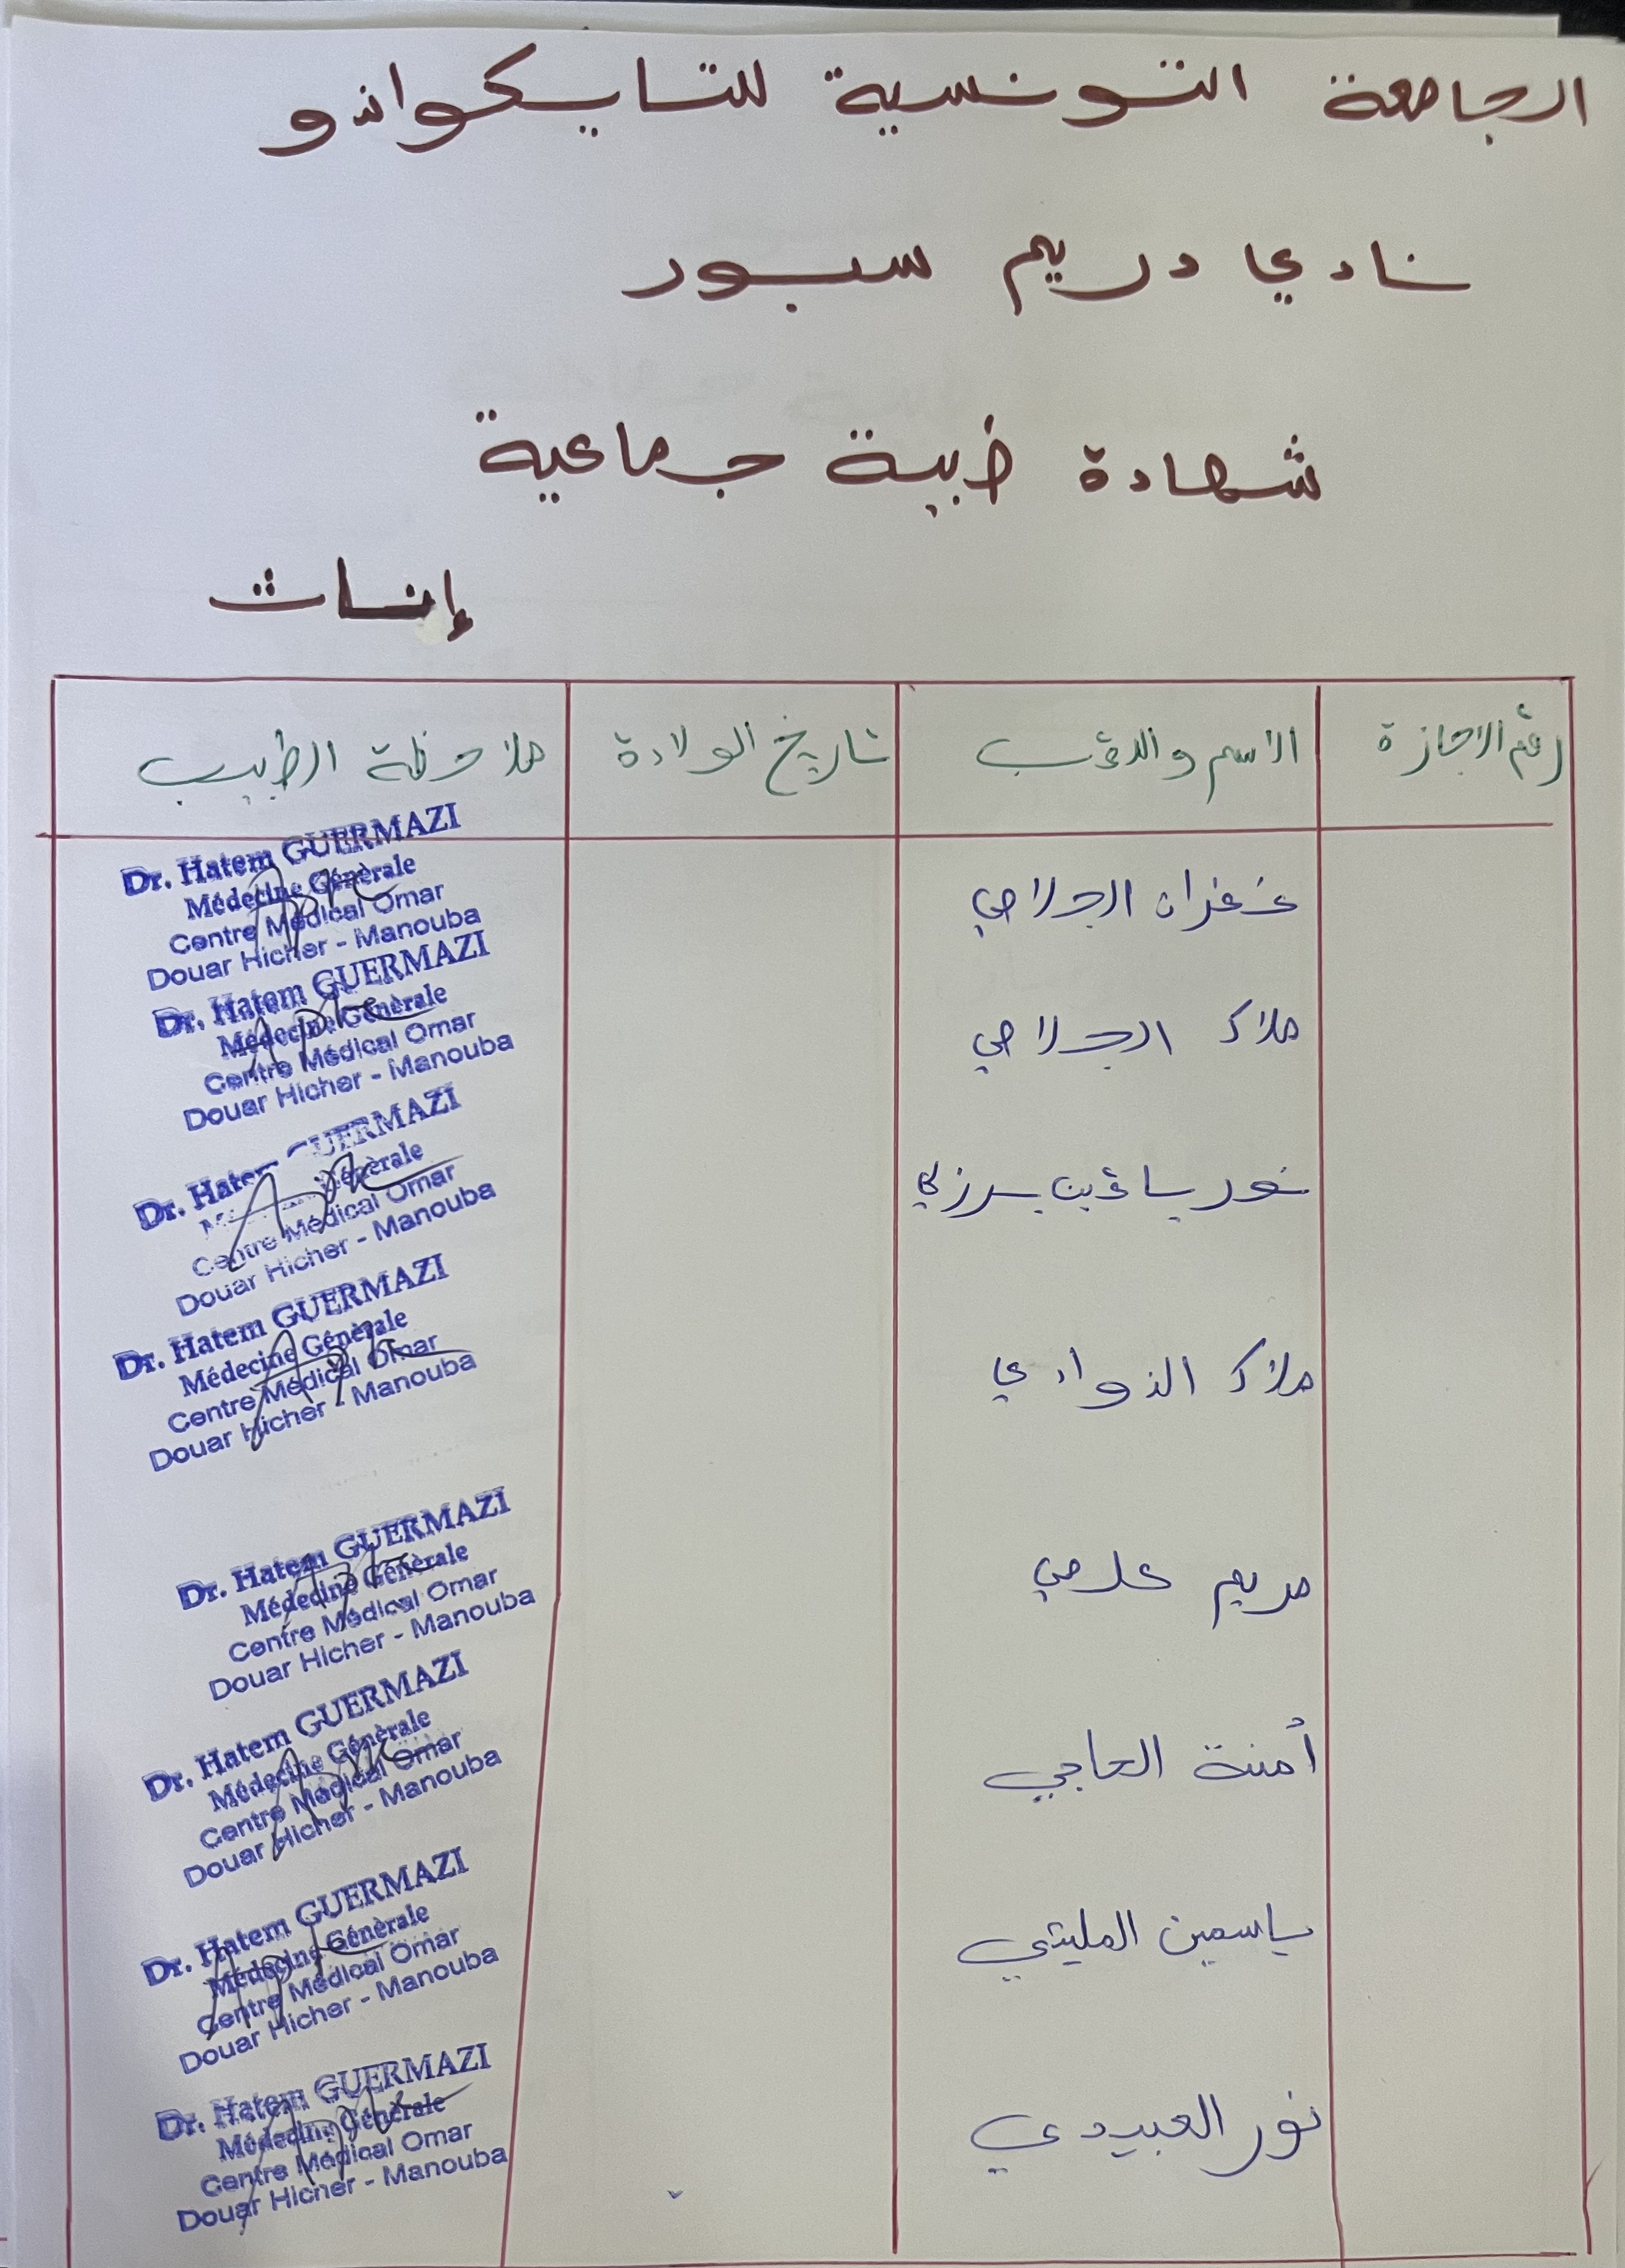 الجامعة التونسية للتايكواندو
نادي دريم سبور
شهادة طبية جماعية
إناث
رقم الاجازة الاسم واللقب تاريخ الولادة ملاحظة الطبيب
غفران الجلاصي
Dr. Hatem GUERMAZI
Médecine Générale
Centre Médical Omar
Douar Hicher - Manouba
ملاك الجلاصي
Dr. Hatem GUERMAZI
Médecine Générale
Centre Médical Omar
Douar Hicher - Manouba
نور
Dr. Hatem GUERMAZI
Générale
Centre Médical Omar
Douar Hicher - Manouba
ملاك الذوادي
Dr. Hatem GUERMAZI
Médecine Générale
Centre Médical Omar
Douar Hicher - Manouba
مريم علامي
Dr. Hatem GUERMAZI
Médecine Générale
Centre Médical Omar
Douar Hicher - Manouba
أمنة العاجي
Dr. Hatem GUERMAZI
Médecine Générale
Centre Médical Omar
Douar Hicher - Manouba
ياسمين المليتي
Dr. Hatem GUERMAZI
Médecine Générale
Centre Médical Omar
Douar Hicher - Manouba
نور العبيدي
Dr. Hatem GUERMAZI
Médecine Générale
Centre Médical Omar
Douar Hicher - Manouba